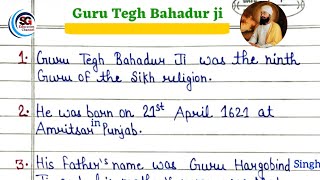 SG
Guru Tegh Bahadur ji
1. Guru Tegh Bahadur Ji was the ninth
Guru of the Sikh religion.
2. He was born on 21st April 1621 at
Amritsar in Punjab.
3. His Father's name was Guru Hargobind Singh